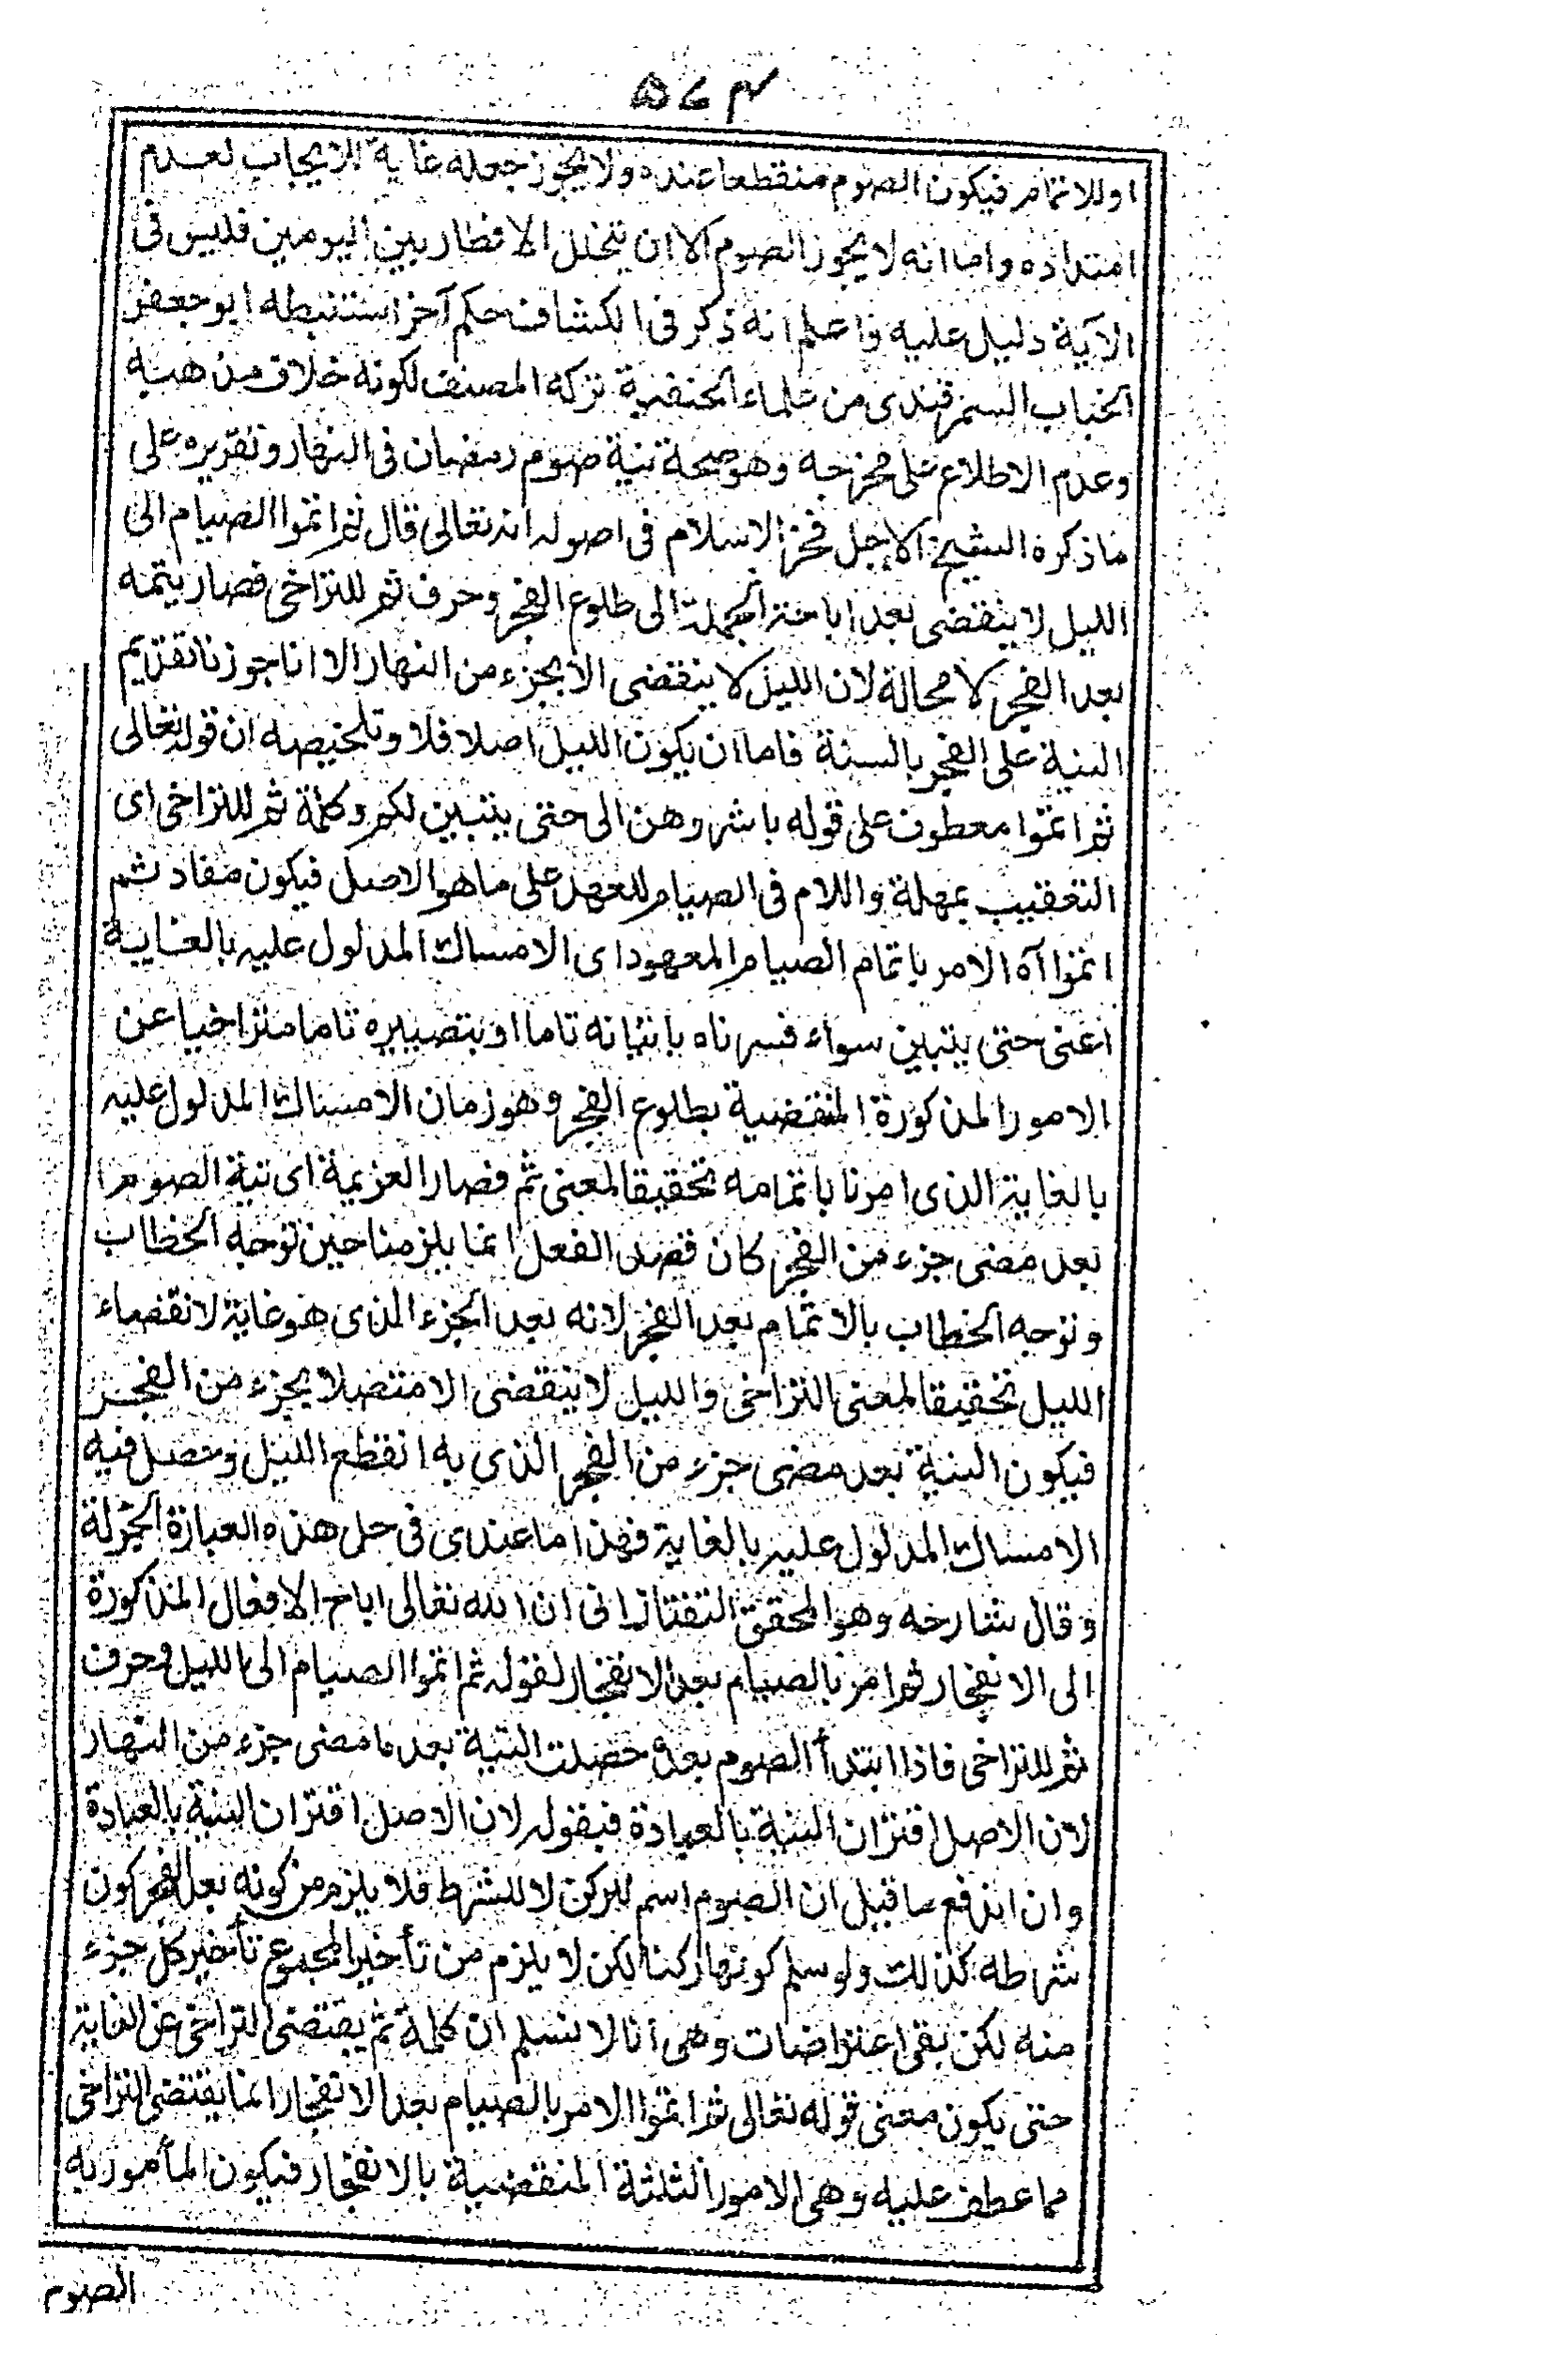 ۵۷۴
او للاتمام فيكون الصوم منقطعا عنده ولا يجوز جعله غاية للايجاب لعدم
امتداده واما انه لا يجوز الصوم الا ان يتخلل الافطار بين اليومين فليس فى
الآية دليل عليه واعلم انه ذكر فى الكشاف حكم آخر استنبطه ابو جعفر
الخباب السمرقندى من علماء الحنفية تركه المصنف لكونه خلاف مذهبه
وعدم الاطلاع على مخرجه وهو صحة نية صوم رمضان فى النهار وتقريره على
ما ذكره الشيخ الاجل فخر الاسلام فى اصوله انه تعالى قال ثم اتموا الصيام الى
الليل لا ينقضى بعد اباحة الجملة الى طلوع الفجر وحرف ثم للتراخى فصار يتمه
بعد الفجر لا محالة لان الليل لا ينقضى الا بجزء من النهار الا انا جوزنا تقديم
النية على الفجر بالسنة فاما ان يكون الليل اصلا فلا وتلخيصه ان قوله تعالى
ثم اتموا معطوف على قوله باشروهن الى حتى يتبين لكم وكلمة ثم للتراخى اى
التعقيب بمهلة واللام فى الصيام للعهد على ما هو الاصل فيكون مفاد ثم
اتموا آه الامر باتمام الصيام المعهود اى الامساك المدلول عليه بالغاية
اعنى حتى يتبين سواء فسرناه باتيانه تاما او بتصييره تاما متراخيا عن
الامور المذكورة المنقضية بطلوع الفجر وهو زمان الامساك المدلول عليه
بالغاية الذى امرنا باتمامه تحقيقا لمعنى ثم فصار العزيمة اى نية الصوم
بعد مضى جزء من الفجر كان قصد الفعل انما يلزمنا حين توجه الخطاب
وتوجه الخطاب بالاتمام بعد الفجر لانه بعد الجزء الذى هو غاية لانقضاء
الليل تحقيقا لمعنى التراخى والليل لا ينقضى الا متصلا بجزء من الفجر
فيكون النية بعد مضى جزء من الفجر الذى به انقطع الليل وحصل فيه
الامساك المدلول عليه بالغاية فهذا ما عندى فى حل هذه العبارة الجزلة
وقال شارحه وهو المحقق التفتازانى ان الله تعالى اباح الافعال المذكورة
الى الانفجار ثم امر بالصيام بعد الانفجار لقوله ثم اتموا الصيام الى الليل وحرف
ثم للتراخى فاذا ابتدأ الصوم بعده حصلت النية بعد ما مضى جزء من النهار
لان الاصل اقتران النية بالعبادة فبقوله لان الاصل اقتران النية بالعبادة
وان اندفع ما قيل ان الصوم اسم للركن لا للشرط فلا يلزم من كونه بعد الفجر كون
شرطه كذلك ولو سلم كونها ركنا لكن لا يلزم من تأخير المجموع تأخير كل جزء
منه لكن بقى اعتراضات وهى انا لا نسلم ان كلمة ثم يقتضى التراخى عن الغاية
حتى يكون معنى قوله تعالى ثم اتموا الامر بالصيام بعد الانفجار انما يقتضى التراخى
مما عطف عليه وهى الامور الثلثة المنقضية بالانفجار فيكون المأمور به
الصوم